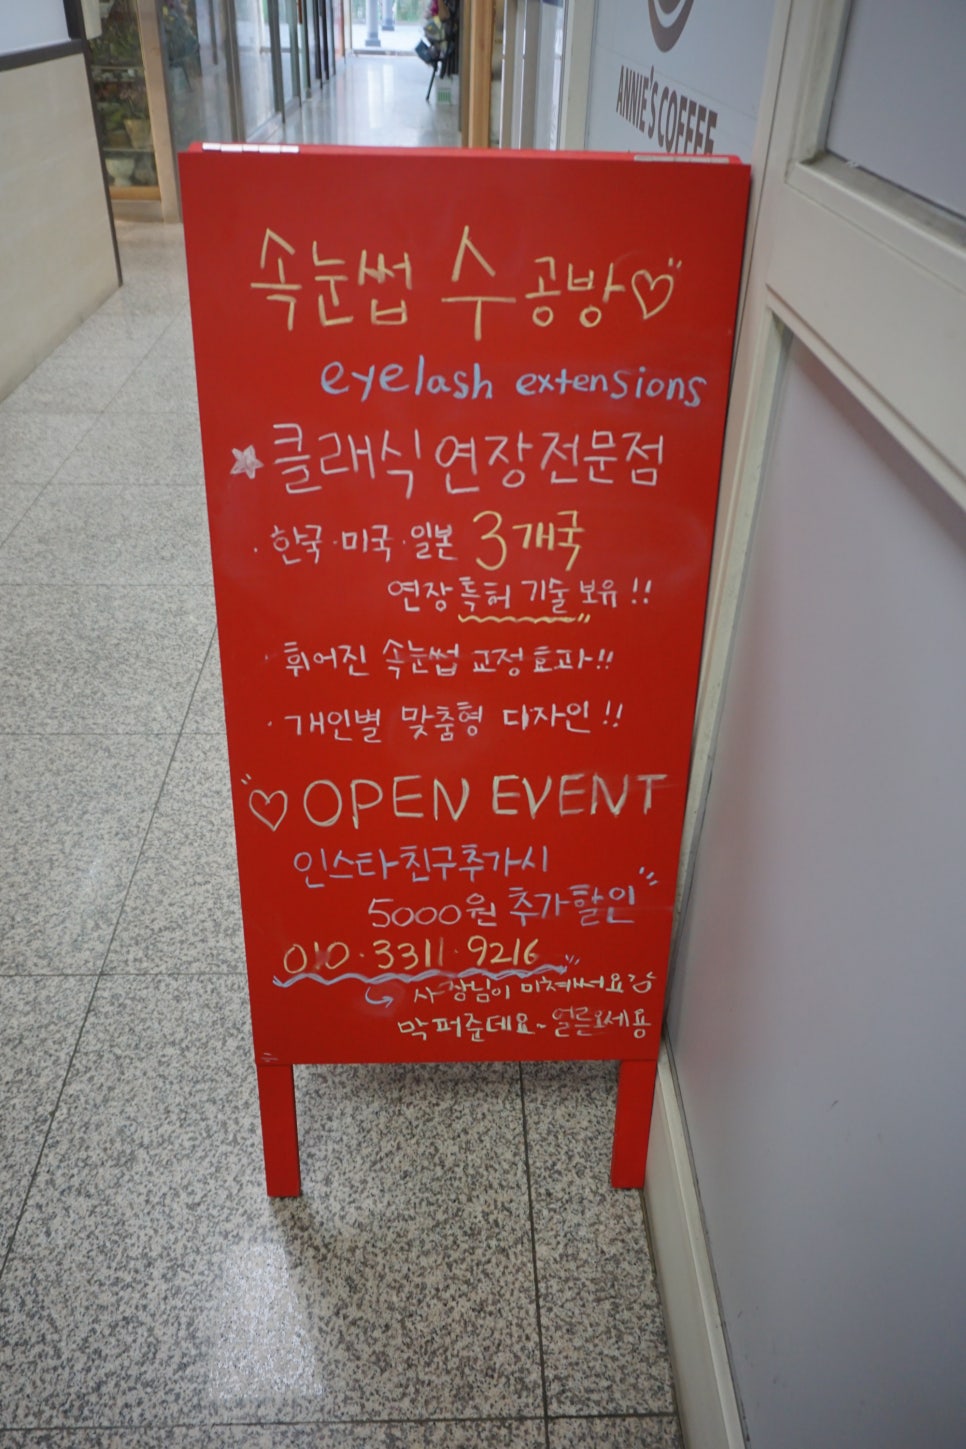 ANNIE'S COFFEE
속눈썹 수공방♡
eyelash extensions
★클래식 연장전문점
· 한국·미국·일본 3개국
연장특허 기술 보유!!
· 휘어진 속눈썹 교정효과!!
· 개인별 맞춤형 디자인!!
♡OPEN EVENT
인스타친구추가시
5000원 추가할인
010·3311·9216
사장님이 미쳐써요
막퍼준데요~ 얼른오세용